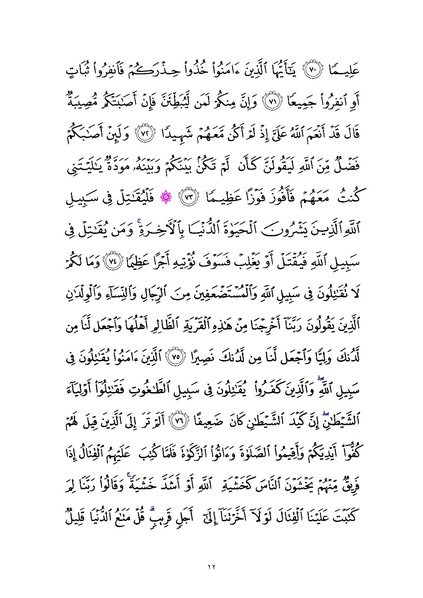 عَلِيمًا ﴿٧٠﴾ يَٰٓأَيُّهَا ٱلَّذِينَ ءَامَنُوا۟ خُذُوا۟ حِذْرَكُمْ فَٱنفِرُوا۟ ثُبَاتٍ
أَوِ ٱنفِرُوا۟ جَمِيعًا ﴿٧١﴾ وَإِنَّ مِنكُمْ لَمَن لَّيُبَطِّئَنَّ فَإِنْ أَصَٰبَتْكُم مُّصِيبَةٌ
قَالَ قَدْ أَنْعَمَ ٱللَّهُ عَلَىَّ إِذْ لَمْ أَكُن مَّعَهُمْ شَهِيدًا ﴿٧٢﴾ وَلَئِنْ أَصَٰبَكُمْ
فَضْلٌ مِّنَ ٱللَّهِ لَيَقُولَنَّ كَأَن لَّمْ تَكُنۢ بَيْنَكُمْ وَبَيْنَهُۥ مَوَدَّةٌ يَٰلَيْتَنِى
كُنتُ مَعَهُمْ فَأَفُوزَ فَوْزًا عَظِيمًا ﴿٧٣﴾ ۞ فَلْيُقَٰتِلْ فِى سَبِيلِ
ٱللَّهِ ٱلَّذِينَ يَشْرُونَ ٱلْحَيَوٰةَ ٱلدُّنْيَا بِٱلْءَاخِرَةِ ۚ وَمَن يُقَٰتِلْ فِى
سَبِيلِ ٱللَّهِ فَيُقْتَلْ أَوْ يَغْلِبْ فَسَوْفَ نُؤْتِيهِ أَجْرًا عَظِيمًا ﴿٧٤﴾ وَمَا لَكُمْ
لَا تُقَٰتِلُونَ فِى سَبِيلِ ٱللَّهِ وَٱلْمُسْتَضْعَفِينَ مِنَ ٱلرِّجَالِ وَٱلنِّسَآءِ وَٱلْوِلْدَٰنِ
ٱلَّذِينَ يَقُولُونَ رَبَّنَآ أَخْرِجْنَا مِنْ هَٰذِهِ ٱلْقَرْيَةِ ٱلظَّالِمِ أَهْلُهَا وَٱجْعَل لَّنَا مِن
لَّدُنكَ وَلِيًّا وَٱجْعَل لَّنَا مِن لَّدُنكَ نَصِيرًا ﴿٧٥﴾ ٱلَّذِينَ ءَامَنُوا۟ يُقَٰتِلُونَ فِى
سَبِيلِ ٱللَّهِ ۖ وَٱلَّذِينَ كَفَرُوا۟ يُقَٰتِلُونَ فِى سَبِيلِ ٱلطَّٰغُوتِ فَقَٰتِلُوٓا۟ أَوْلِيَآءَ
ٱلشَّيْطَٰنِ ۖ إِنَّ كَيْدَ ٱلشَّيْطَٰنِ كَانَ ضَعِيفًا ﴿٧٦﴾ أَلَمْ تَرَ إِلَى ٱلَّذِينَ قِيلَ لَهُمْ
كُفُّوٓا۟ أَيْدِيَكُمْ وَأَقِيمُوا۟ ٱلصَّلَوٰةَ وَءَاتُوا۟ ٱلزَّكَوٰةَ فَلَمَّا كُتِبَ عَلَيْهِمُ ٱلْقِتَالُ إِذَا
فَرِيقٌ مِّنْهُمْ يَخْشَوْنَ ٱلنَّاسَ كَخَشْيَةِ ٱللَّهِ أَوْ أَشَدَّ خَشْيَةً ۚ وَقَالُوا۟ رَبَّنَا لِمَ
كَتَبْتَ عَلَيْنَا ٱلْقِتَالَ لَوْلَآ أَخَّرْتَنَآ إِلَىٰٓ أَجَلٍ قَرِيبٍ ۗ قُلْ مَتَٰعُ ٱلدُّنْيَا قَلِيلٌ
١٢